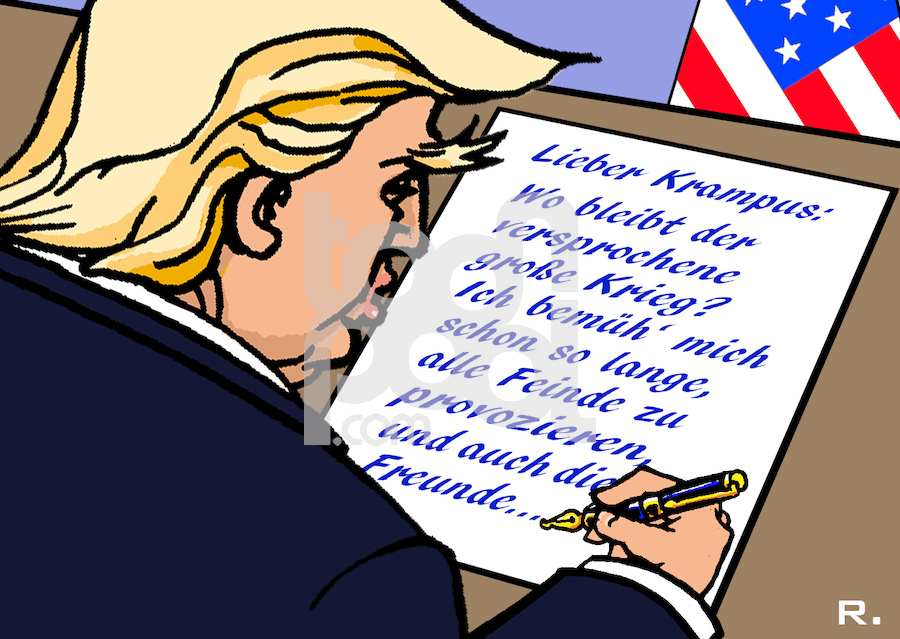 Lieber Krampus:
Wo bleibt der
versprochene
große Krieg?
Ich bemüh‘ mich
schon so lange,
alle Feinde zu
provozieren,
und auch die
Freunde...
toonpool
.com
R.